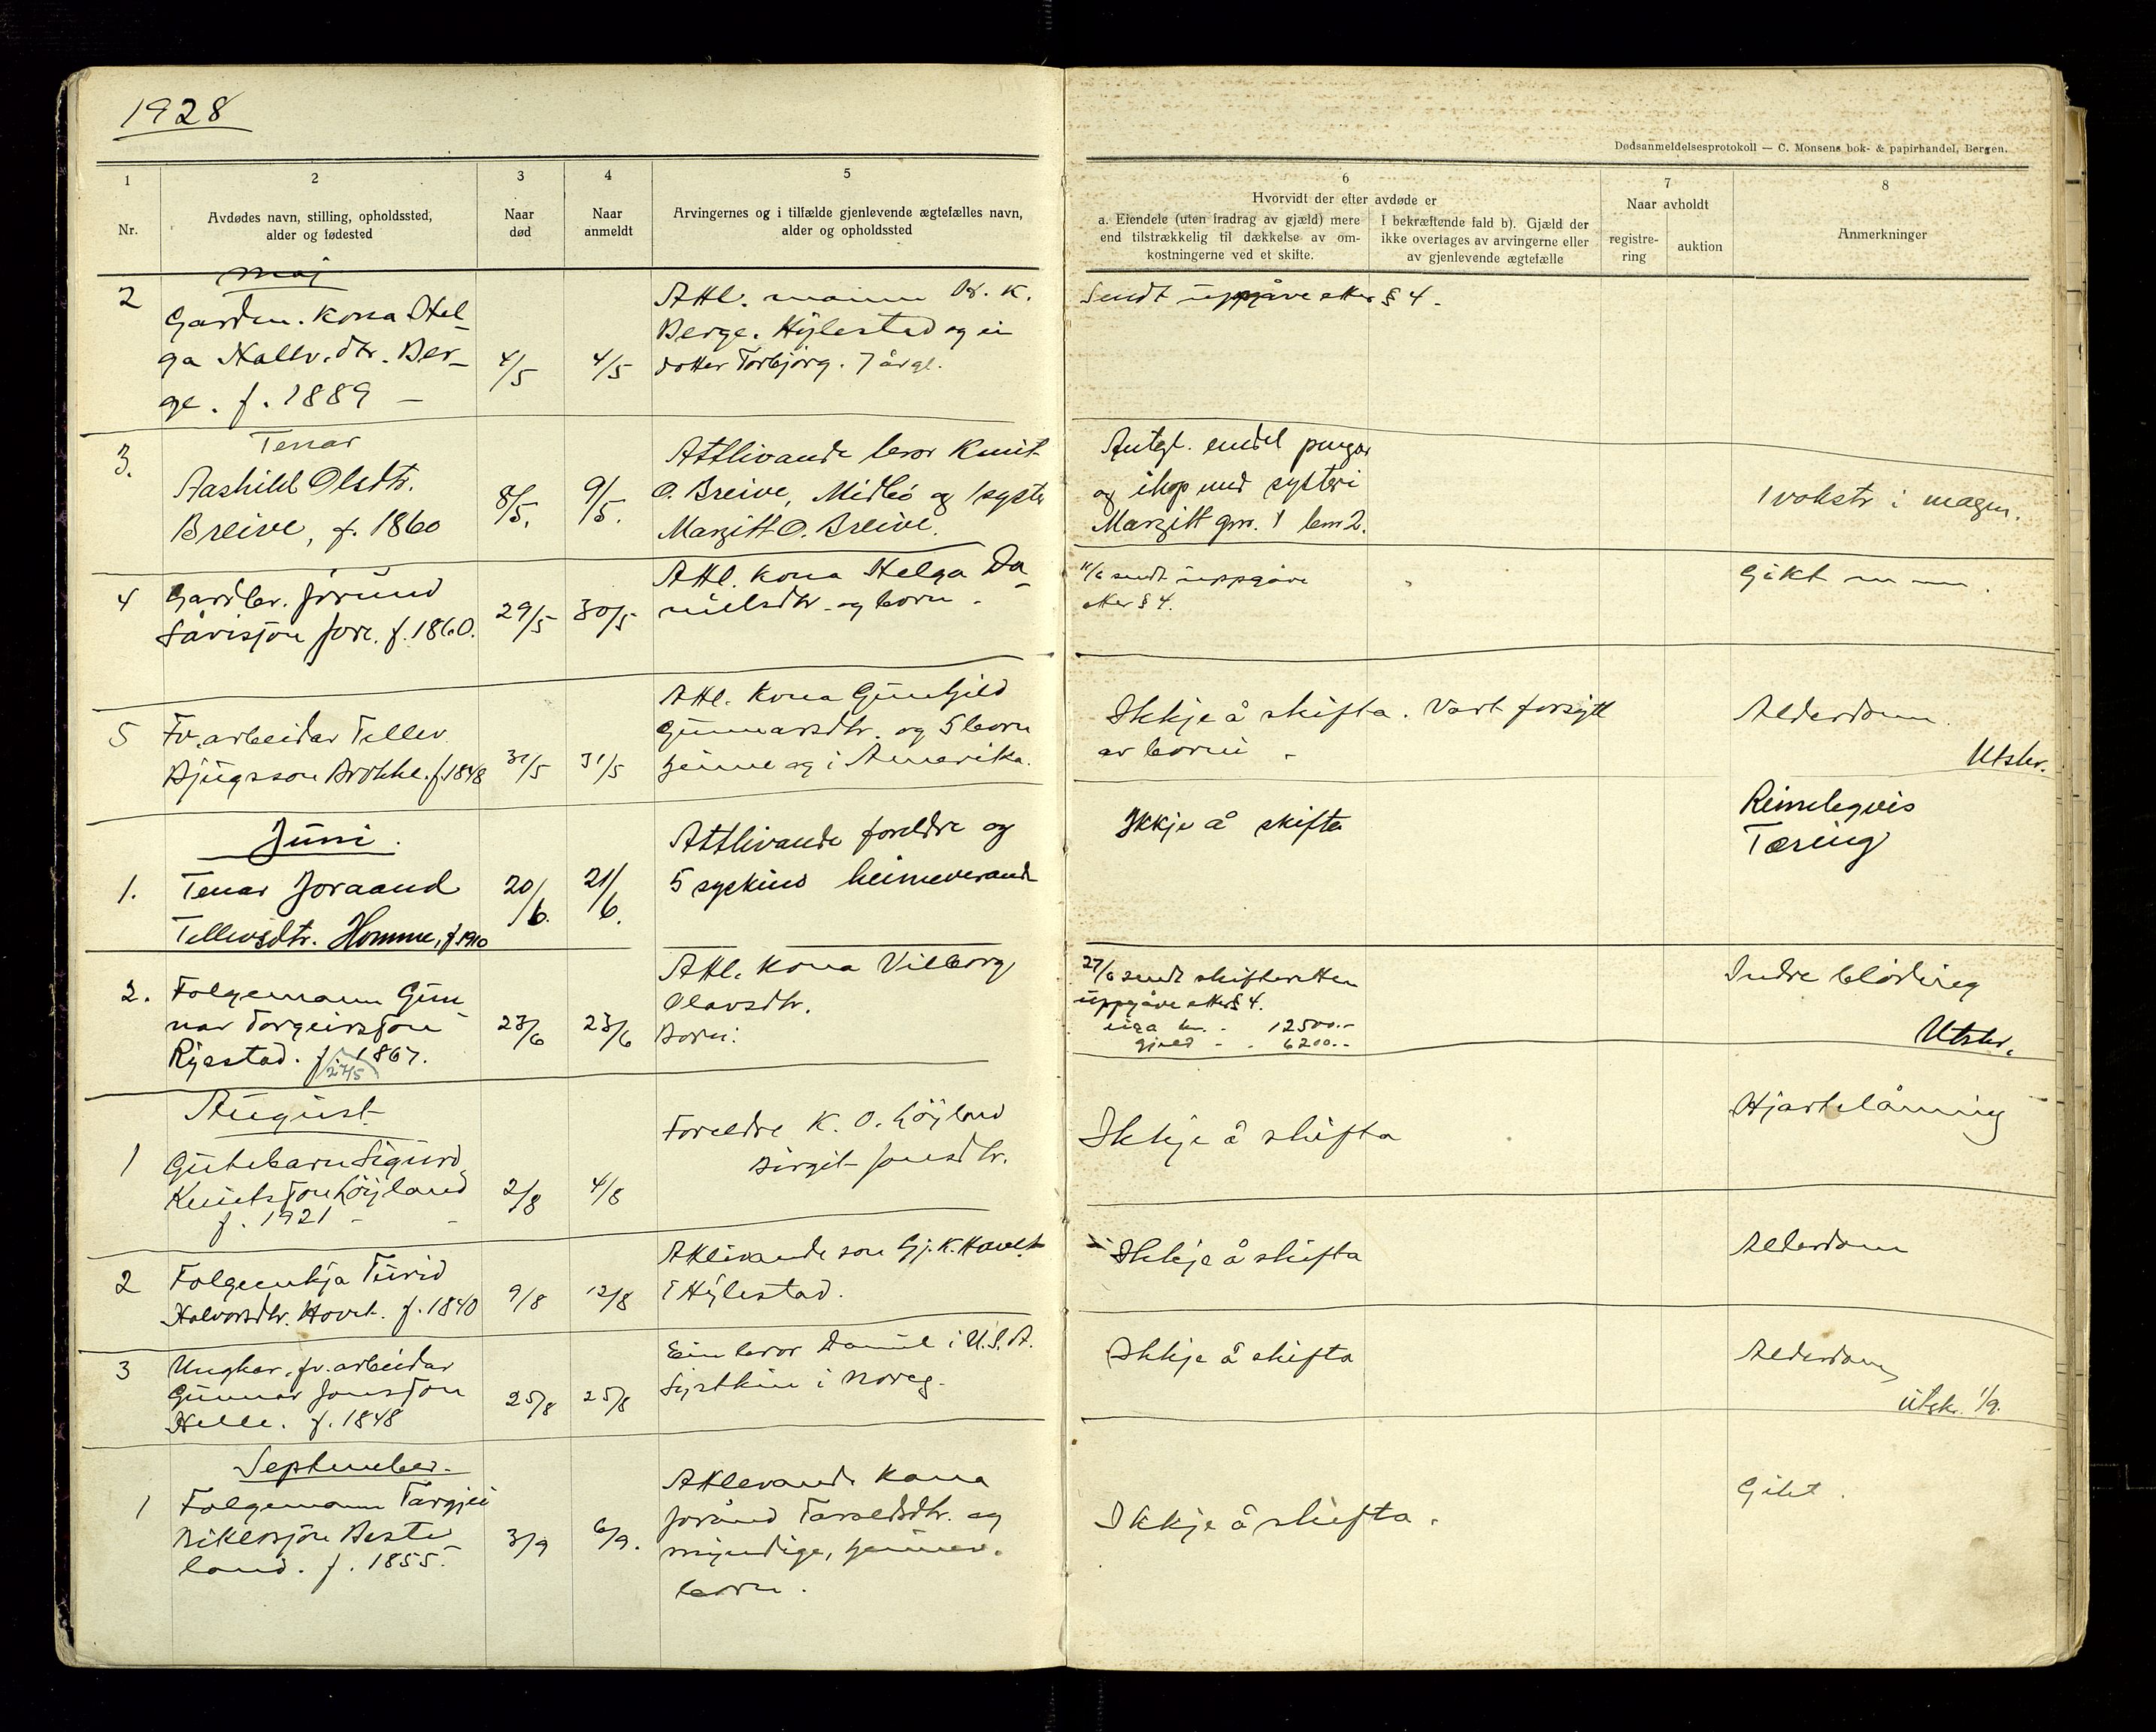 1928
Dødsanmeldelsesprotokoll — C. Monsens bok- & papirhandel, Bergen.
1
2
3
4
5
6
7
8
Nr.
Avdødes navn, stilling, opholdssted,
alder og fødested
Naar
død
Naar
anmeldt
Arvingernes og i tilfælde gjenlevende ægtefælles navn,
alder og opholdssted
Hvorvidt der efter avdøde er
a. Eiendele (uten fradrag av gjæld) mere
end tilstrækkelig til dækkelse av om-
kostningerne ved et skifte.
I bekræftende fald b). Gjæld der
ikke overtages av arvingerne eller
av gjenlevende ægtefælle
Naar avholdt
registre-
ring
auktion
Anmerkninger
maj
2
Gardm. kona Hel-
ga Hallv.dtr. Ber-
ge. f. 1889 —
4/5
4/5
Attl. mannen K.
Berge. Hylestad og ei
dotter Torbjørg. 7 år gl.
Sendt uppgåve etter § 4.
3.
Tenar
Aashild Olsdtr.
Breive, f. 1860
8/5.
9/5.
Attlivande bror Knut
O. Breive, Midbö og 1 syster
Margitt O. Breive.
Antgl. endel pengar
og ihop med systeri
Margitt gnr. 1 bnr 2.
1 vokstr i magen.
4
Gardbr. Jorund
Såvisson Jore. f. 1860.
29/5
30/5
Attl. kona Helga Da-
nielsdtr. og born.
11/6 sendt uppgåve
etter § 4.
Gikt m m.
5
Fv. arbeidar Tellev
Bjugsson Brokke. f. 1848
31/5
31/5
Attl. kona Gunhild
Gunnarsdtr. og 5 born
heime og i Amerika.
Ikkje å skifta. Vart forsytt
av borni
Alderdom.
Utskr.
Juni.
1.
Tenar Joraand
Tellevsdtr. Homme, f 1910
20/6.
21/6.
Attlivande foreldre og
5 syskind heimeverande
Ikkje å skifta
Rimelegvis
Tæring
2.
Folgemann Gun-
nar Torgeirsson
Rystad. f. 1867.
27/5
23/6
23/6
Attl. kona Vilborg
Olavsdtr.
Born:
27/6 sendt skifteretten
uppgåve etter § 4.
eiga kr. - 12500.-
gjeld - - 6200.-
Indre blöding
Utskr.
August
1
Gutebarn Sigurd
Knutsson Löyland
f. 1921 -
2/8
4/8
Foreldre K. O. Löyland
Birgit Jonsdtr.
Ikkje å skifta
Hjartelåming
2
Folgeenkja Turid
Halvorsdtr. Hovet. f. 1840
9/8
12/8
Attlivande son Gj. K. Hovet
i Hylestad.
Ikkje å skifta
Alderdom
3
Ungkar, fv. arbeidar
Gunnar Jonsson
Helle. f. 1848
25/8
25/8
Ein bror Daniel i U.S.A.
Systkin i Noreg.
Ikkje å skifta
Alderdom
Utskr. 1/9.
September.
1
Folgemann Targjei
Bikleson Beste-
land. f. 1855.
3/9
6/9.
Attlevande kona
Jorånd Taraldsdtr. og
myndige, heimev.
born.
Ikkje å skifta.
Gikt.